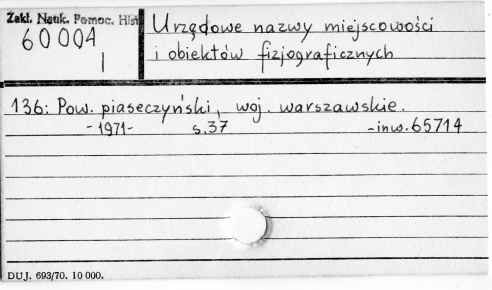 Zakł. Nauk. Pomoc. Hist
60004
I
Urzędowe nazwy miejscowości
i obiektów fizjograficznych
136: Pow. piaseczyński, woj. warszawskie.
-1971- s.37 -inw. 65714
DUJ. 693/70. 10 000.